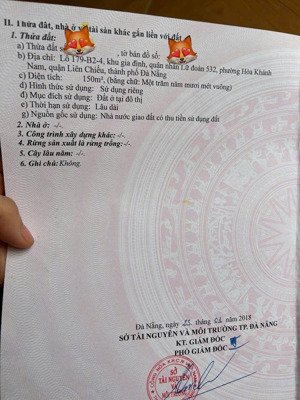 II. Thửa đất, nhà ở và tài sản khác gắn liền với đất
1. Thửa đất:
a) Thửa đất , tờ bản đồ số:
b) Địa chỉ: Lô 179-B2-4, khu gia định, quân nhân Lữ đoàn 532, phường Hòa Khánh
Nam, quận Liên Chiểu, thành phố Đà Nẵng
c) Diện tích: 150m², (bằng chữ: Một trăm năm mươi mét vuông)
d) Hình thức sử dụng: Sử dụng riêng
đ) Mục đích sử dụng: Đất ở tại đô thị
e) Thời hạn sử dụng: Lâu dài
g) Nguồn gốc sử dụng: Nhà nước giao đất có thu tiền sử dụng đất
2. Nhà ở: -/-.
3. Công trình xây dựng khác: -/-.
4. Rừng sản xuất là rừng trồng: -/-.
5. Cây lâu năm: -/-.
6. Ghi chú: Không.
Đà Nẵng, ngày tháng năm 2018
SỞ TÀI NGUYÊN VÀ MÔI TRƯỜNG TP. ĐÀ NẴNG
KT. GIÁM ĐỐC
PHÓ GIÁM ĐỐC
SỞ
TÀI NGUYÊN
VÀ
MÔI TRƯỜNG